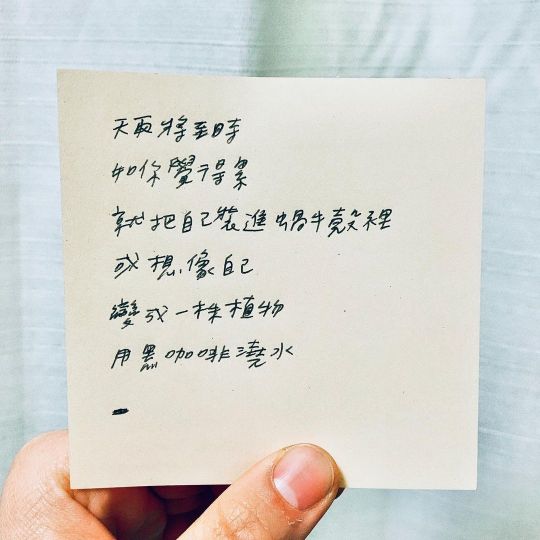 天取將至時
如你覺得累
就把自己裝進蝸牛殼裡
或想像自己
變成一株植物
用黑咖啡澆水
-